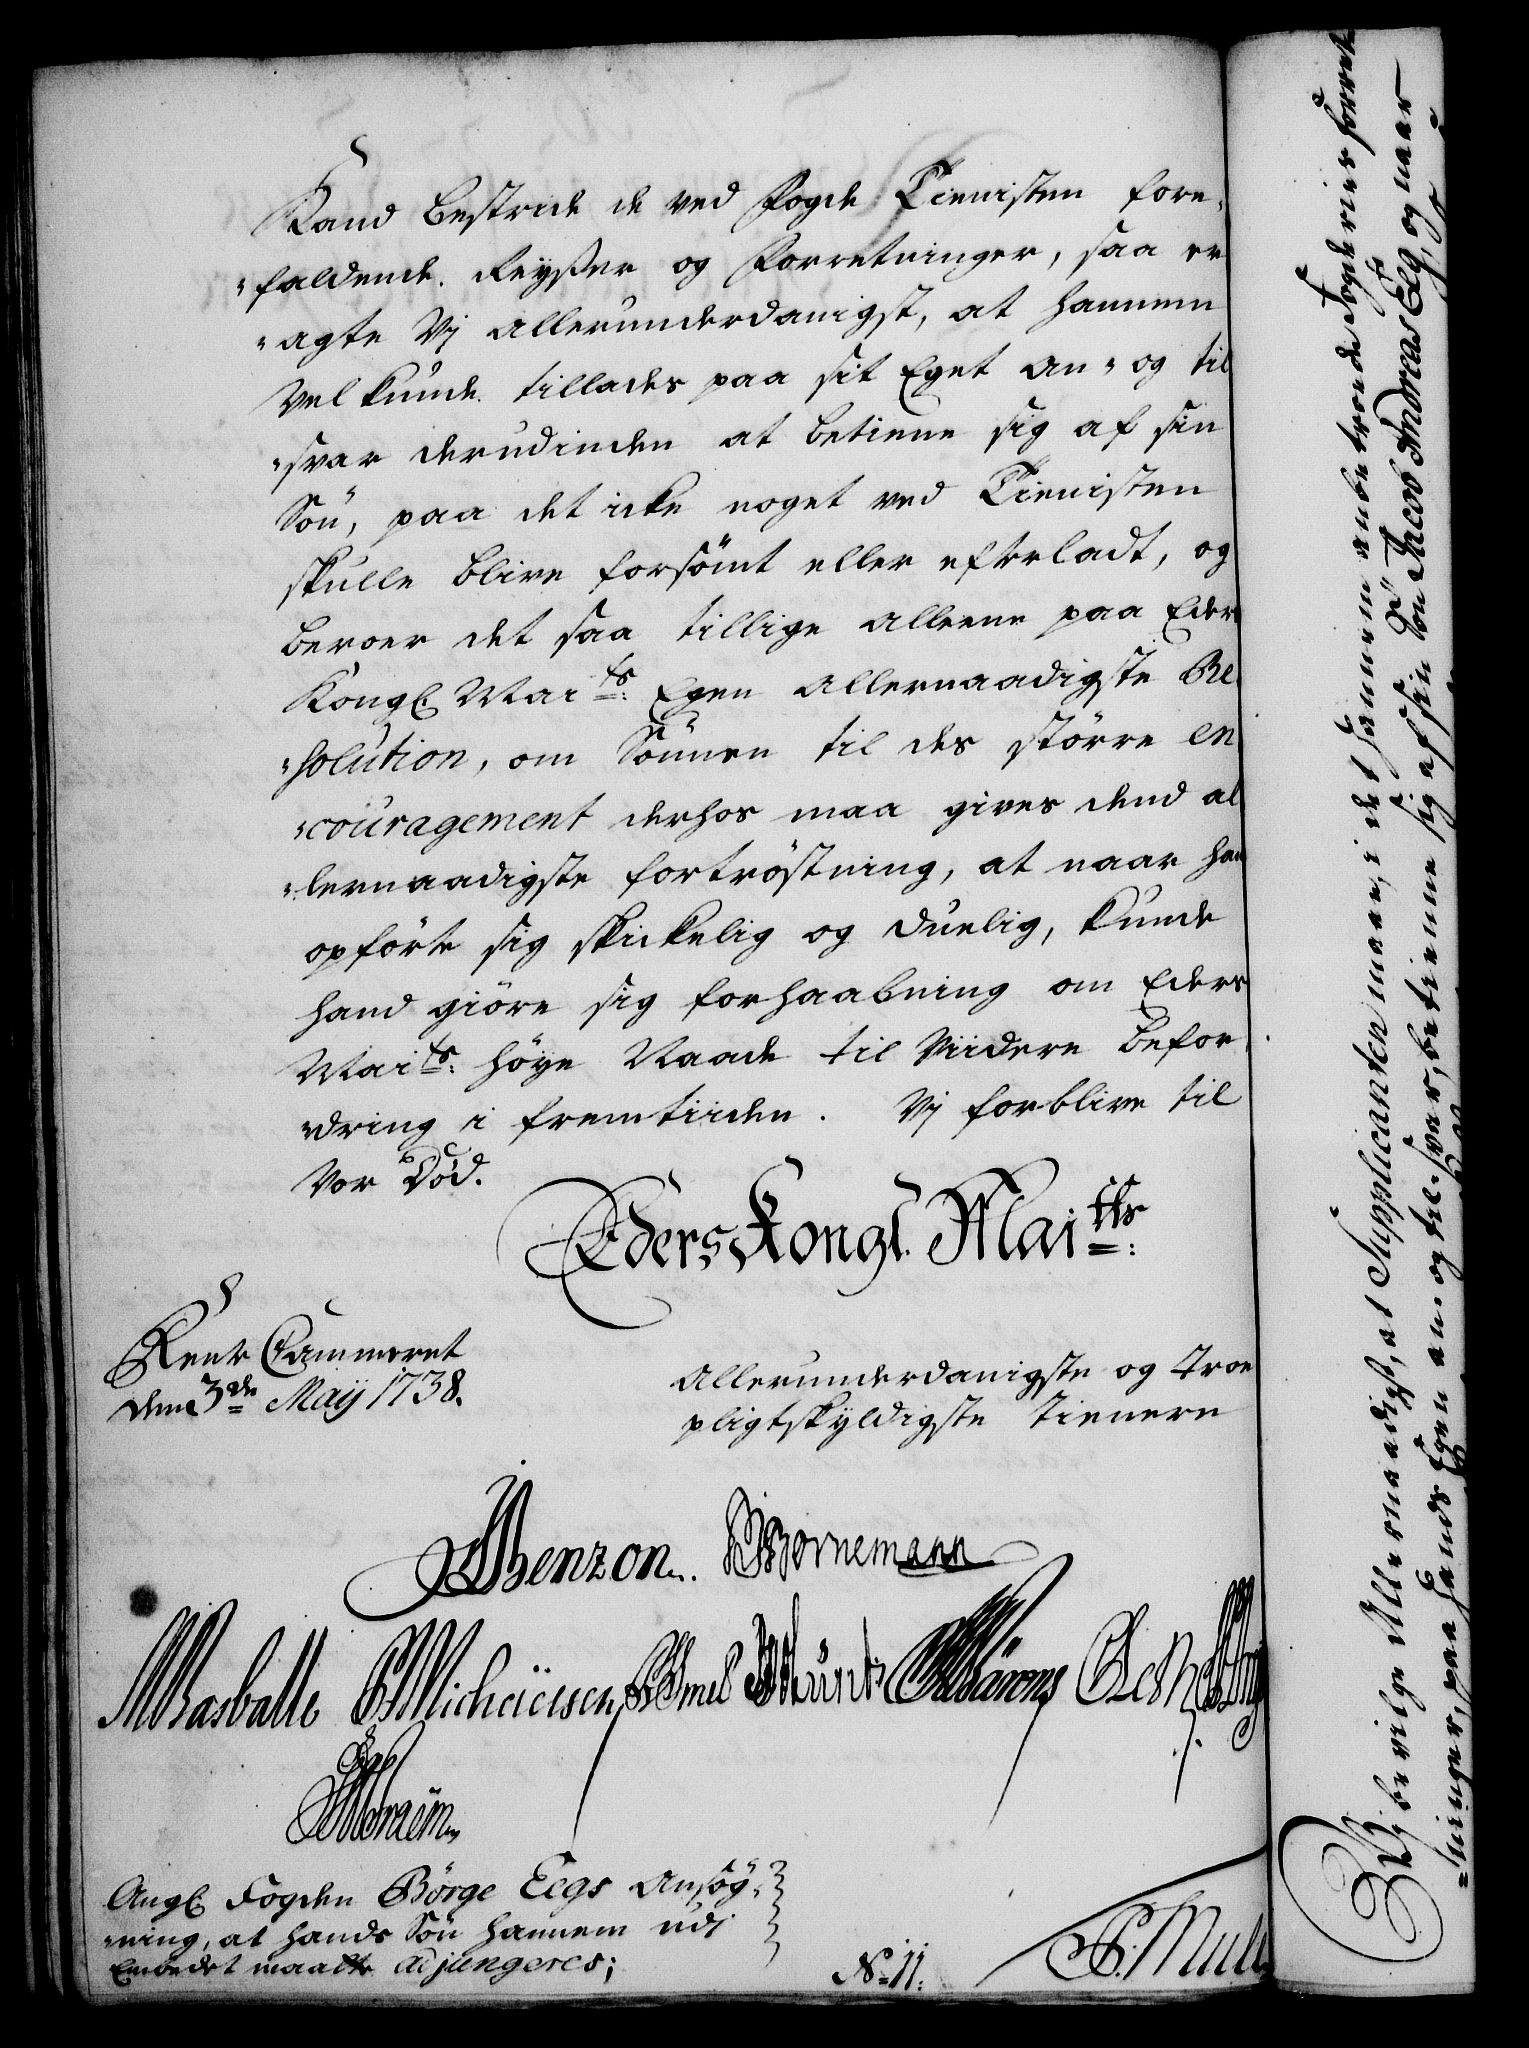 Kand bestride de ved Fogde Tienisten fore,
"faldende Reyßer og Forretninger, saa er
"agte Vj allerunderdanigst, at hannem
vel kunde tillades paa sit Eget an- og til
"svar derudinden at betiene sig af sin
Sön, paa det icke noget ved Tienisten
skulle blive forsömt eller efterladt, og
beroer det saa tillige alleene paa Eders
Kongl Mai ts: Egen allernaadigste Re
"solution, om Sönnen til des större en
"couragement derhos maa gives dend al
"lernaadigste fortröstning, at naar hand
opförte sig skickelig og duelig, kunde
hand giöre sig forhaabning om Eders
Mai ts: höye Naade til Viidere befor
"dring i fremtiiden. Vj forblive til
Vor Död.
Eders Kongl. Mai tts:
Rente Cammeret
den 3de Maij 1738.
Allerunderdanigste og Troe
pligtskyldigste Tienere
Benzon. Bornemann
MBasballe Michelsen
Angl Fogden Börge Eegs Ansög-
"ning, at hands Sön hannem udj
Embedet maatte adjungeres;
No 11.
Vj bevilge Allernaadigst, at Supplicanten maae, i det hannem anbetroede Fogderies Forret
"ninger, paa hands Egen an- og til-svar, betienne sig af sin Sön Jacob Andreas Eeg, og naar